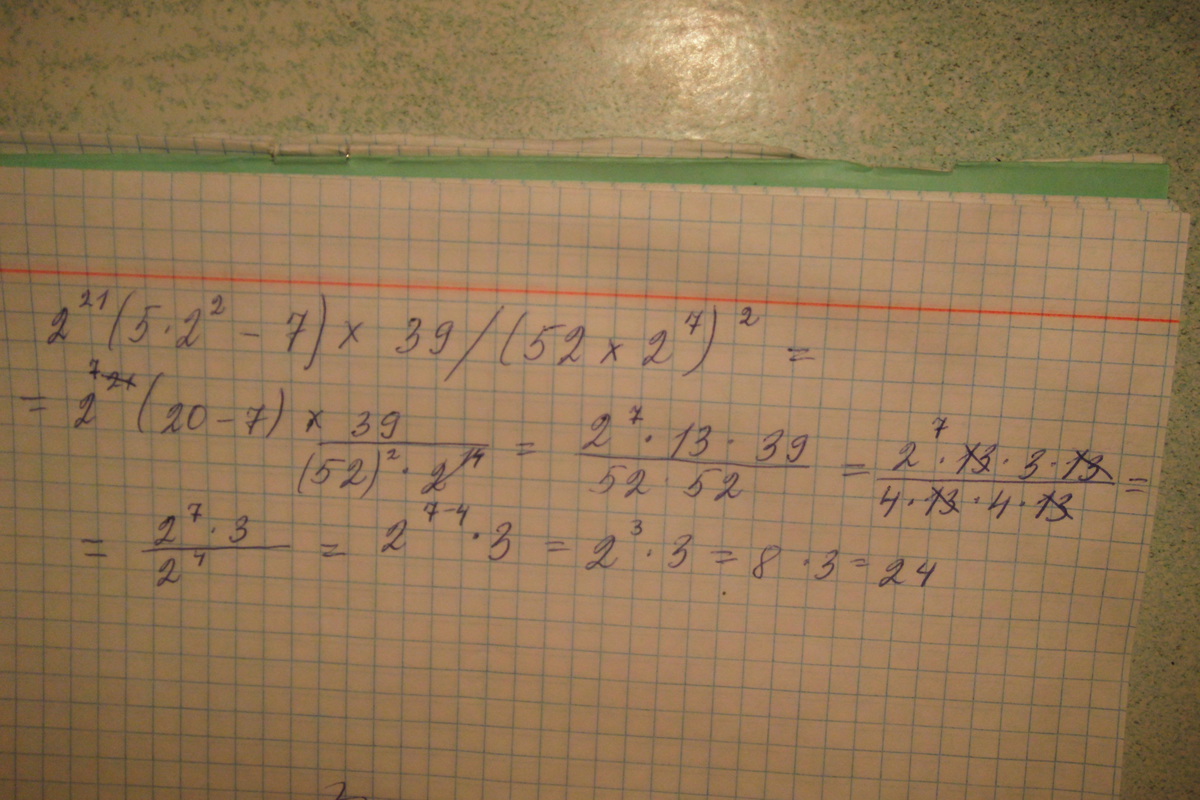 2²¹(5·2² − 7) × 39/(52 × 2⁷)² =
= 2⁷ ²¹ (20 − 7) × 39/((52)² · 2¹⁴) = (2⁷ · 13 · 39)/(52 · 52) = (2⁷ · 13 · 3 · 13)/(4 · 13 · 4 · 13) =
= (2⁷ · 3)/2⁴ = 2⁷⁻⁴ · 3 = 2³ · 3 = 8 · 3 = 24